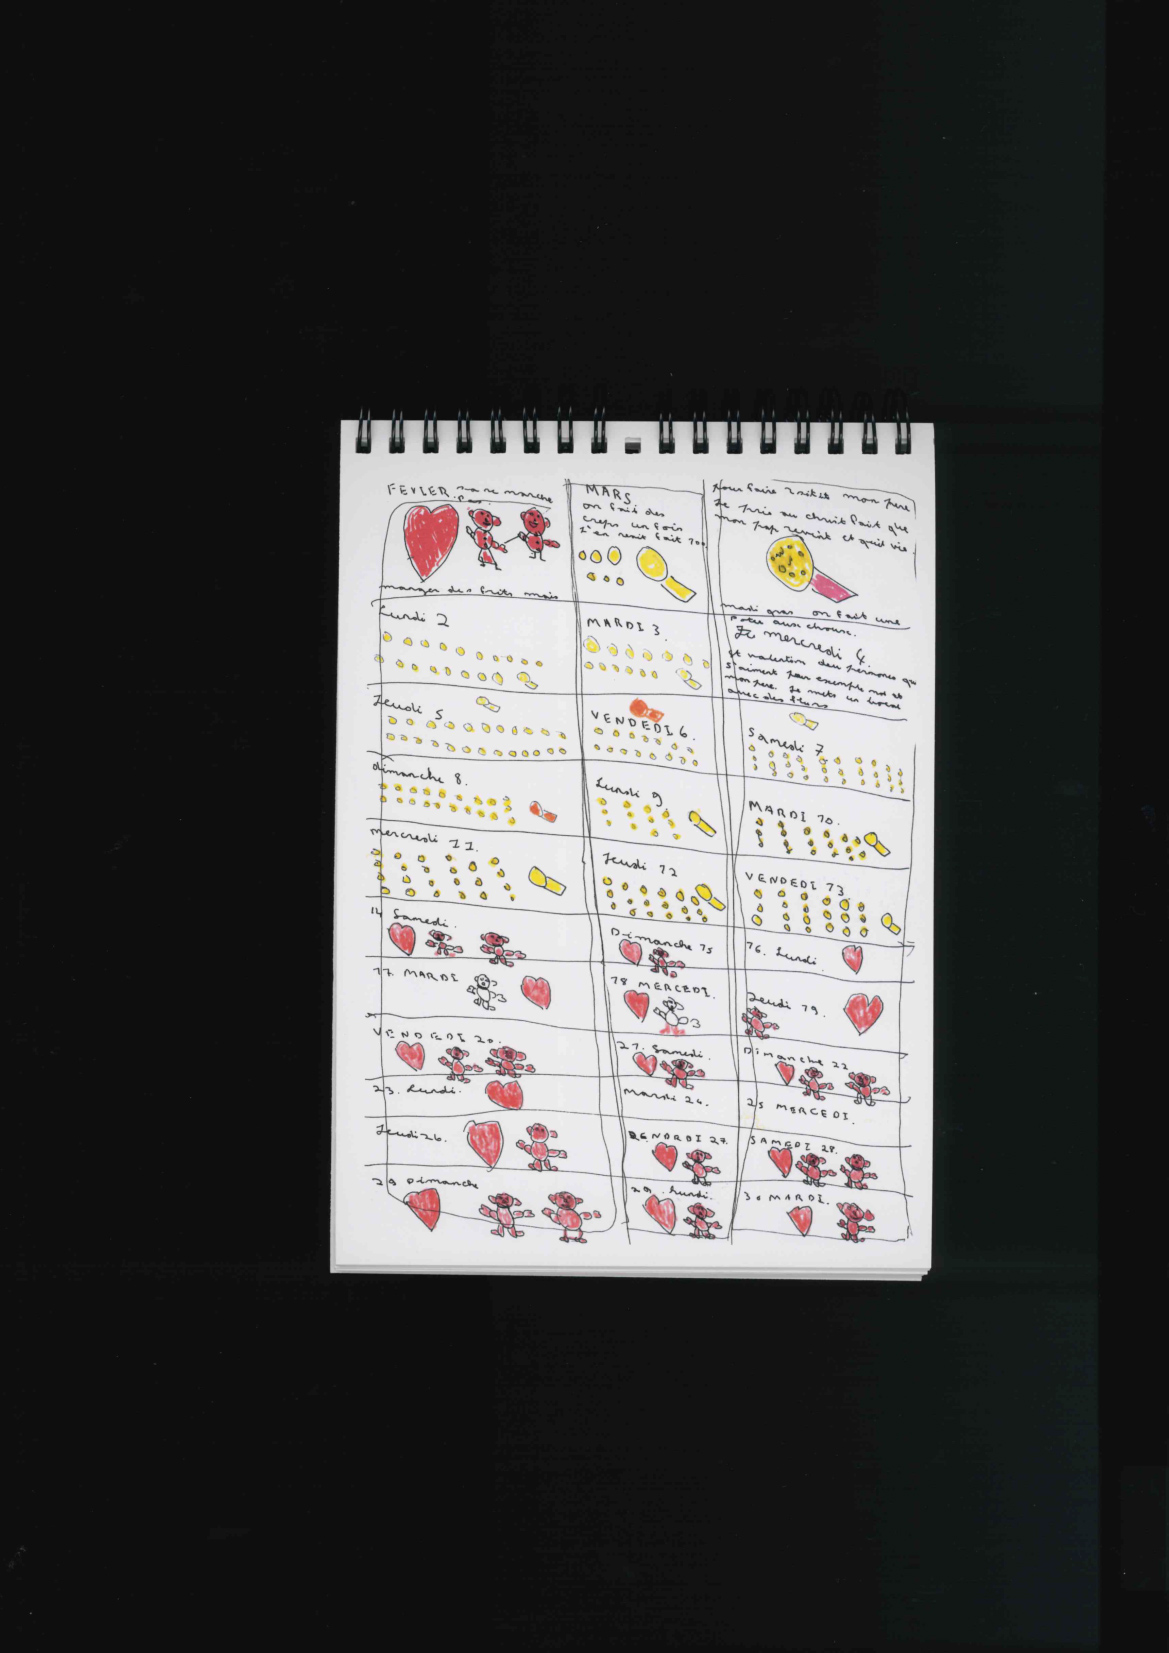 FEVIER sa ne marche
pas.
manger des fruits mais
MARS.
on fait des
creps un fois
j'en
fait 100.
pour faire mon pere
Je pris au christ fait que
mon pap revient et quil vie
mardi gras on fait une
potee aux choux.
Lundi 2
MARDI 3.
Je mercredi 4.
st valentin deux personnes qu
s'aiment par exemple moi et
mon pere. Je mets un
avec des fleurs
Jeudi 5
VENDEDI 6.
Samedi 7
dimanche 8.
Lundi 9.
MARDI 10.
mercredi 11.
Jeudi 12
VENDEDI 13.
14 Samedi.
Dimanche 15
16. Lundi.
17. MARDI
18 MERCEDI.
Jeudi 19.
VENDEDI 20.
21. Samedi.
Dimanche 22
23. Lundi.
Mardi 24.
25 MERCEDI.
Jeudi 26.
VENDRDI 27.
SAMEDI 28.
29 Dimanche
29. Lundi.
30 MARDI.